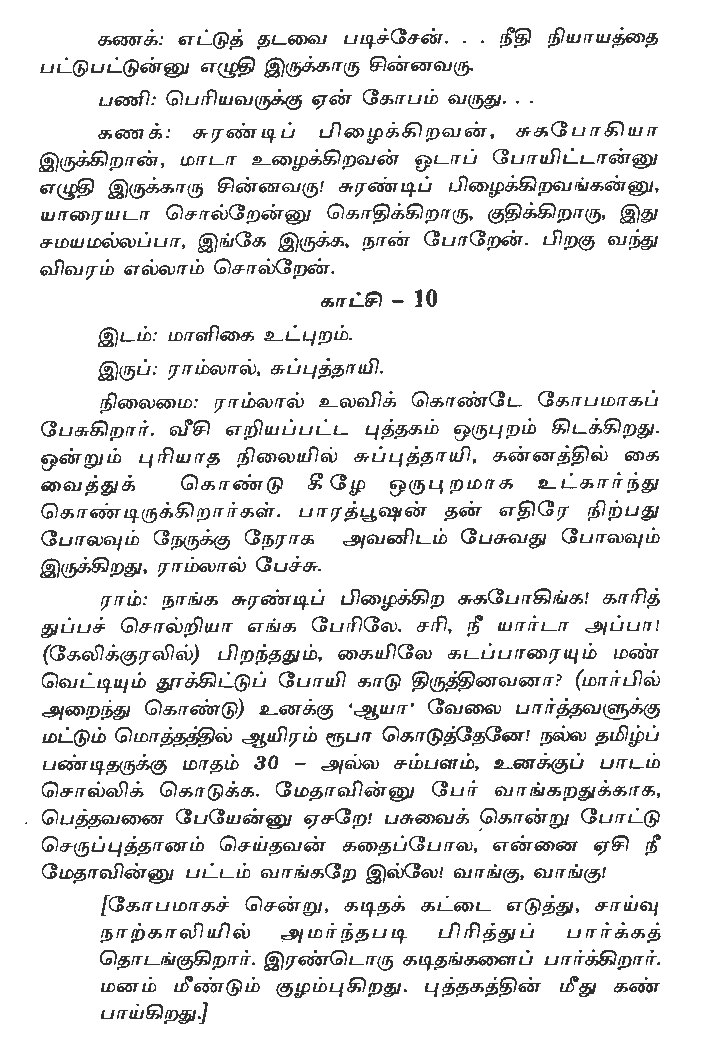 கணக்: எட்டுத் தடவை படிச்சேன். . . நீதி நியாயத்தை
பட்டுபட்டுன்னு எழுதி இருக்காரு சின்னவரு.
பணி: பெரியவருக்கு ஏன் கோபம் வருது. . .
கணக்: சுரண்டிப் பிழைக்கிறவன், சுகபோகியா
இருக்கிறான், மாடா உழைக்கிறவன் ஓடாப் போயிட்டான்னு
எழுதி இருக்காரு சின்னவரு! சுரண்டிப் பிழைக்கிறவங்கன்னு,
யாரையடா சொல்றேன்னு கொதிக்கிறாரு, குதிக்கிறாரு, இது
சமயமல்லப்பா, இங்கே இருக்க, நான் போறேன். பிறகு வந்து
விவரம் எல்லாம் சொல்றேன்.
காட்சி – 10
இடம்: மாளிகை உட்புறம்.
இருப்: ராம்லால், சுப்புத்தாயி.
நிலைமை: ராம்லால் உலவிக் கொண்டே கோபமாகப்
பேசுகிறார். வீசி எறியப்பட்ட புத்தகம் ஒருபுறம் கிடக்கிறது.
ஒன்றும் புரியாத நிலையில் சுப்புத்தாயி, கன்னத்தில் கை
வைத்துக் கொண்டு கீழே ஒருபுறமாக உட்கார்ந்து
கொண்டிருக்கிறார்கள். பாரத்பூஷன் தன் எதிரே நிற்பது
போலவும் நேருக்கு நேராக அவனிடம் பேசுவது போலவும்
இருக்கிறது, ராம்லால் பேச்சு.
ராம்: நாங்க சுரண்டிப் பிழைக்கிற சுகபோகிங்க! காரித்
துப்பச் சொல்றியா எங்க பேரிலே. சரி, நீ யார்டா அப்பா!
(கேலிக்குரலில்) பிறந்ததும், கையிலே கடப்பாரையும் மண்
வெட்டியும் தூக்கிட்டுப் போயி காடு திருத்தினவனா? (மார்பில்
அறைந்து கொண்டு) உனக்கு ‘ஆயா’ வேலை பார்த்தவளுக்கு
மட்டும் மொத்தத்தில் ஆயிரம் ரூபா கொடுத்தேனே! நல்ல தமிழ்ப்
பண்டிதருக்கு மாதம் 30 – அல்ல சம்பளம், உனக்குப் பாடம்
சொல்லிக் கொடுக்க. மேதாவின்னு பேர் வாங்கறதுக்காக,
பெத்தவனை பேயேண்னு ஏசறே! பசுவைக் கொன்று போட்டு
செருப்புத்தானம் செய்தவன் கதைப்போல, என்னை ஏசி நீ
மேதாவின்னு பட்டம் வாங்கறே இல்லே! வாங்கு, வாங்கு!
[கோபமாகச் சென்று, கடிதக் கட்டை எடுத்து, சாய்வு
நாற்காலியில் அமர்ந்தபடி பிரித்துப் பார்க்கத்
தொடங்குகிறார். இரண்டொரு கடிதங்களைப் பார்க்கிறார்.
மனம் மீண்டும் குழம்புகிறது. புத்தகத்தின் மீது கண்
பாய்கிறது.]